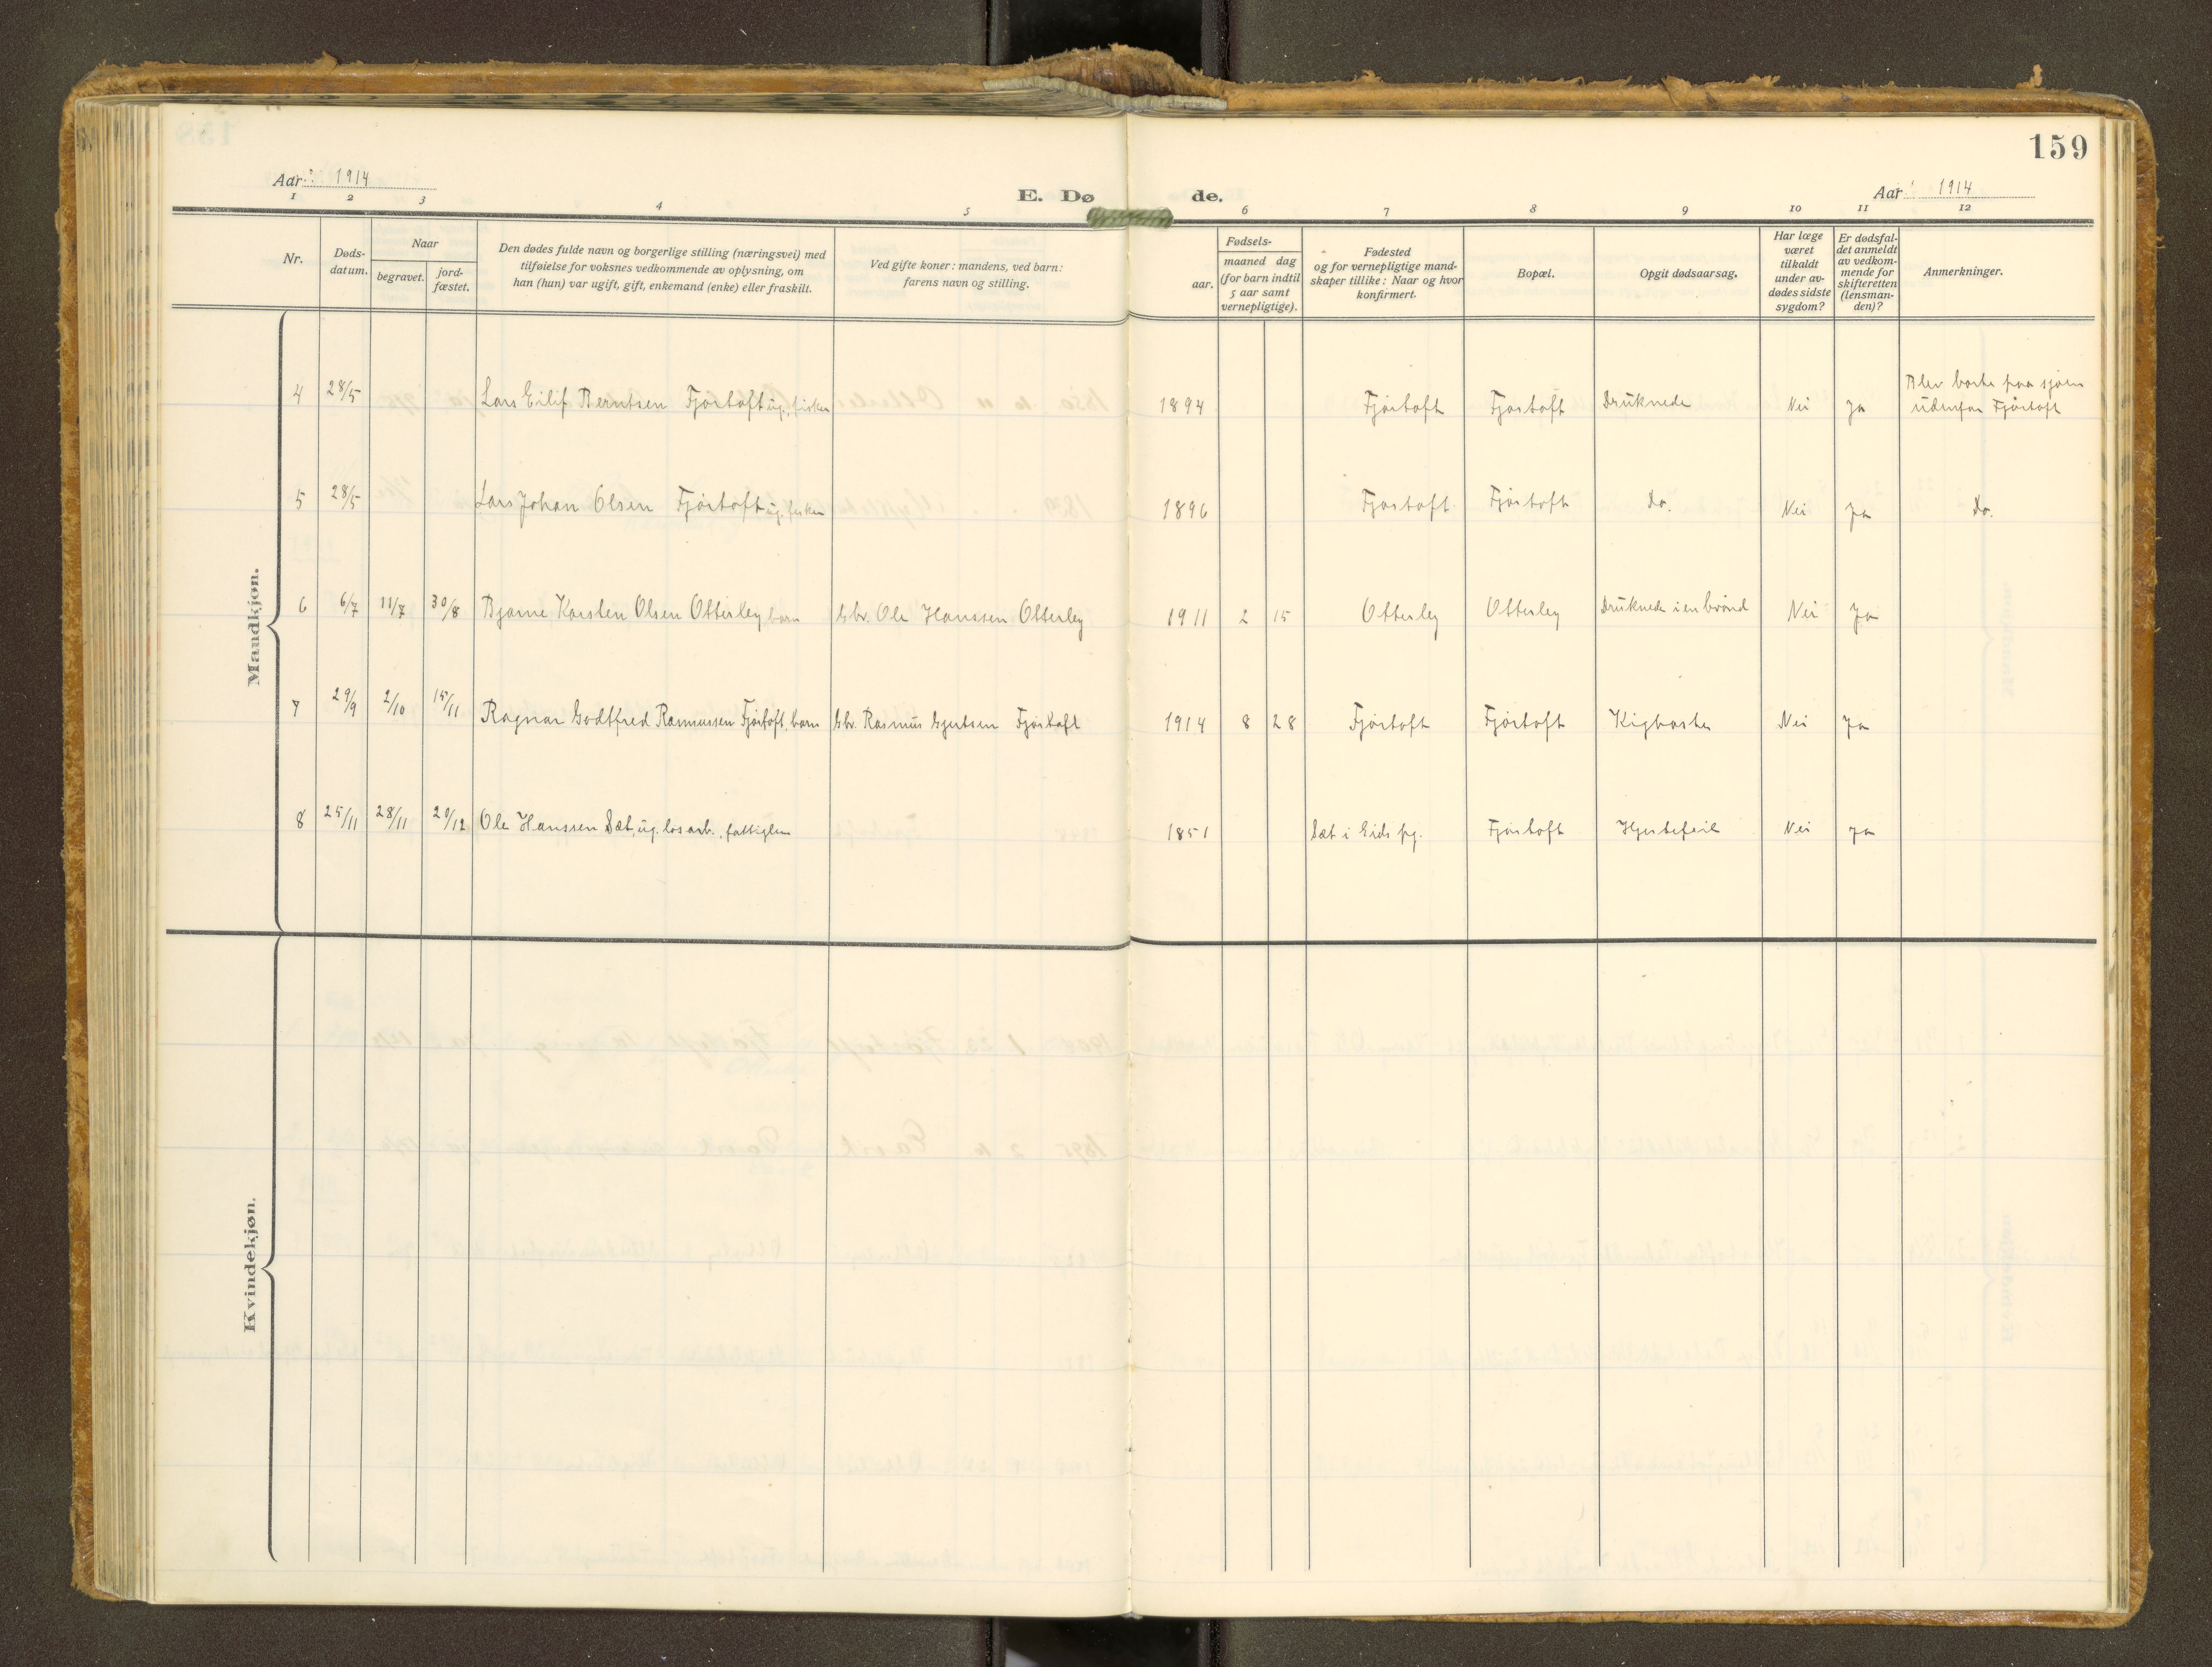 159
Aar 1914
E. Døde.
Aar 1914
1 2 3 4 5 6 7 8 9 10 11 12
Nr.
Døds-
datum.
Naar
begravet.
jord-
fæstet.
Den dødes fulde navn og borgerlige stilling (næringsvei) med
tilføielse for voksnes vedkommende av oplysning, om
han (hun) var ugift, gift, enkemand (enke) eller fraskilt.
Ved gifte koner: mandens, ved barn:
farens navn og stilling.
Fødsels-
aar.
maaned dag
(for barn indtil
5 aar samt
vernepligtige).
Fødested
og for vernepligtige mand-
skaper tillike: Naar og hvor
konfirmert.
Bopæl.
Opgit dødsaarsag.
Har læge
været
tilkaldt
under av-
dødes sidste
sygdom?
Er dødsfal-
det anmeldt
av vedkom-
mende for
skifteretten
(lensman-
den)?
Anmerkninger.
Mandkjøn.
4 28/5 Lars Eilif Berntsen Fjørtoft ug., fisker 1894 Fjørtoft Fjørtoft Druknede Nei Ja Blev borte paa sjøen
udenfor Fjørtoft
5 28/5 Lars Johan Olsen Fjørtoft ug. fisker 1896 Fjørtoft Fjørtoft Do. Nei Ja Do.
6 6/7 11/7 30/8 Bjarne Karsten Olsen Otterley barn Gbr. Ole Hanssen Otterley 1911 2 15 Otterley Otterley Druknede i en brønd Nei Ja
7 29/9 2/10 15/11 Ragnar Godtfred Rasmussen Fjørtoft, barn Gbr. Rasmus Gjertsen Fjørtoft 1914 8 28 Fjørtoft Fjørtoft Kighoste Nei Ja
8 25/11 28/11 20/12 Ole Hanssen Sæt, ug. løsarb., fattiglem 1851 Sæt i Eids pg. Fjørtoft Hjertefeil Nei Ja
Kvindekjøn.